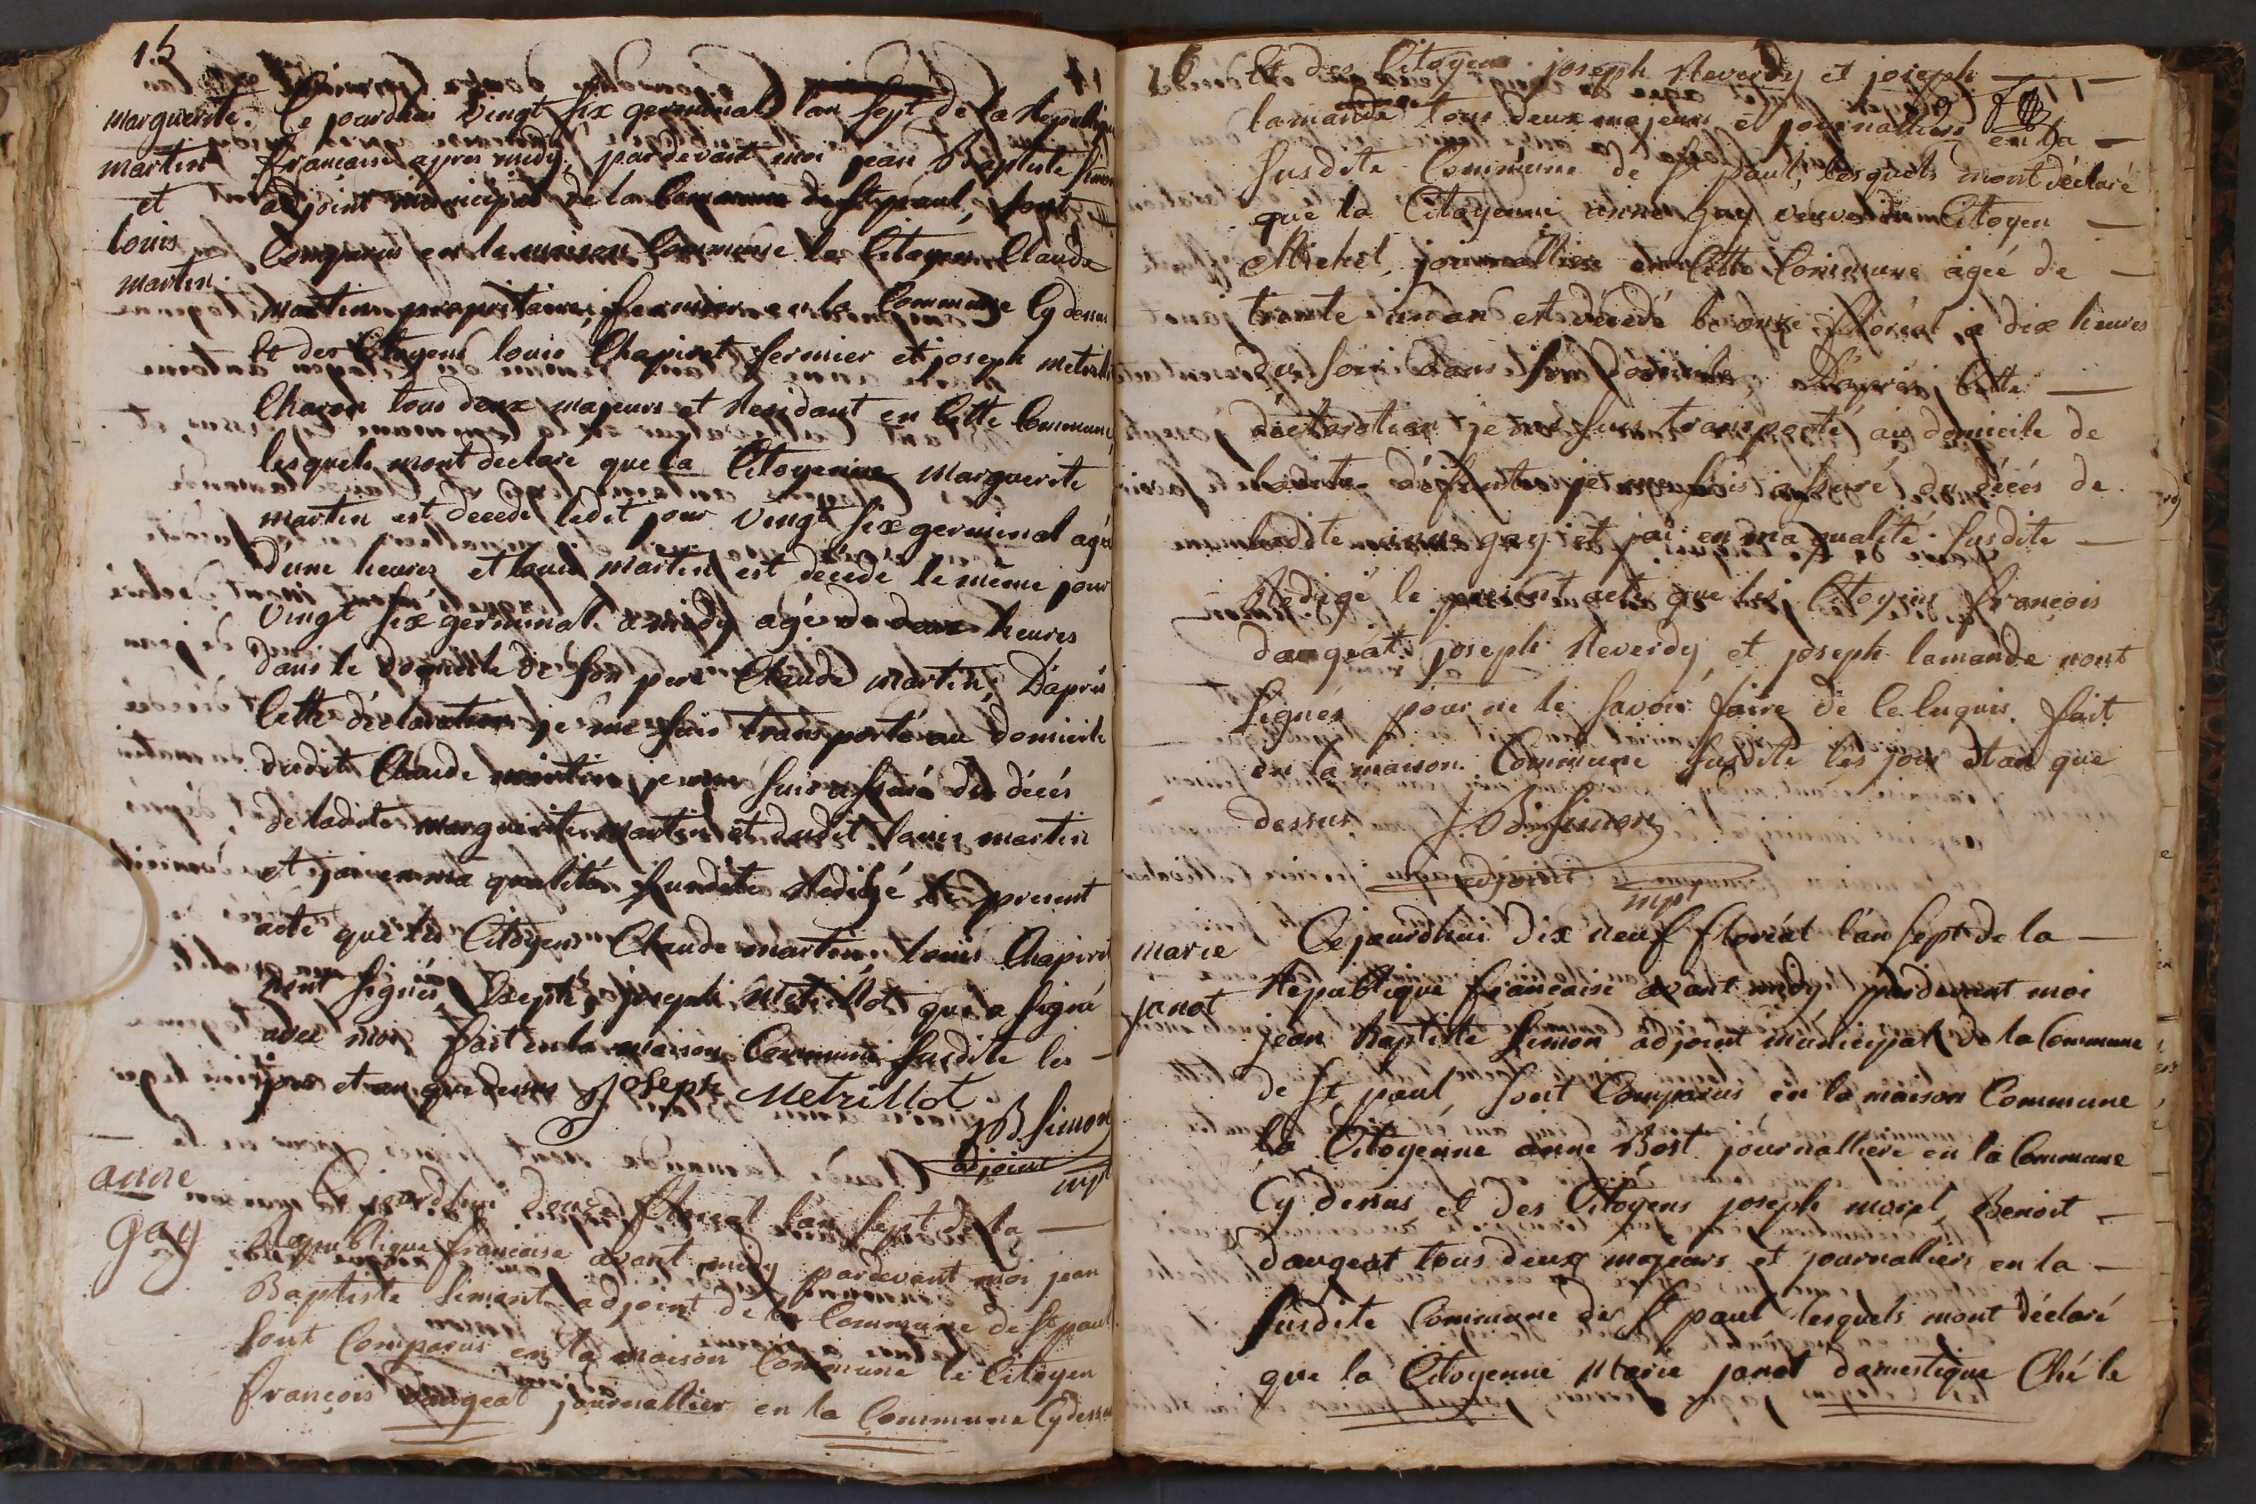 15
marguerite
martin
et
louis
martin.
Ce jourdhui vingt six germinal lan sept de la Republique
francaise apres midy, pardevant moi jean Baptiste Simon
adjoint municipal de la Commune de St paul, sont
Comparus en la maison Commune le Citoyen Claude
martin propritaire, fermier en la Commune Cy dessus
Et des Citoyens louis Chapiret fermier et joseph metrillot
Charon tous deux majeurs et Residant en Cette Commune
lesquels mont declaré que la Citoyenne Marguerite
martin est decedé ledit jour vingt six germinal agée
d'une heures et louis martin est décédé le même jour
vingt six germinal a midy agé de deux heures
dans le domicile de son pere Claude martin, Daprès
Cette déclaration je me suis transporté au domicile
dudit Claude martin, je me suis assuré du décés
de ladite marguerite martin et dudit louis martin
et jai en ma qualité susdite Redigé le present
acte que les Citoyens Claude martin, louis Chapiret
nont signés Excepté joseph Metrillot qui a signé
avec moi, fait en la maison Commune susdite les
jour et an que dessus joseph Metrillot
JB Simon
adjoint
mpl
anne
gay
Ce jourdhui douze floreal lan sept de la
Republique francaise avant midy pardevant moi jean
Baptiste Simont adjoint de la Commune de St paul
sont Comparus en la maison Commune le Citoyen
françois daugeat journallier en la Commune Cy dessus
16
Et des Citoyens joseph Reverdy et joseph
lamande tous deux majeurs et journalliers en la
susdite Commune de St paul, lesquels mont déclaré
que la Citoyenne anne gay veuve du Citoyen
Michel, journalliere en Cette Commune agée de
trente un an est décedé le onze floréal a dix heures
du soir dans son domicile, D'aprés Cette
déclaration je me suis transporté au domicile de
ladite défunte je me suis assuré du décés de
ladite anne gay et jai en ma qualité susdite
Redigé le present acte que les Citoyens françois
daugeat, joseph Reverdy et joseph lamande nont
signés pour ne le savoir faire de Ce Enquis, fait
en la maison Commune susdite les jour et an que
dessus J. B. Simon
adjoint
mpl
marie
janot
Cejourdhui dix neuf floréal l'an sept de la
Republique francaise avant midy pardevant moi
jean baptiste Simon adjoint municipal de la Commune
de St paul sont Comparus en la maison Commune
la Citoyenne anne Bost journalliere en la Commune
Cy dessus et des Citoyens joseph morel, Benoit
daugeat tous deux majeurs et journalliers en la
susdite Commune de St paul lesquels mont déclaré
que la Citoyenne Marie janot domestique Ché le